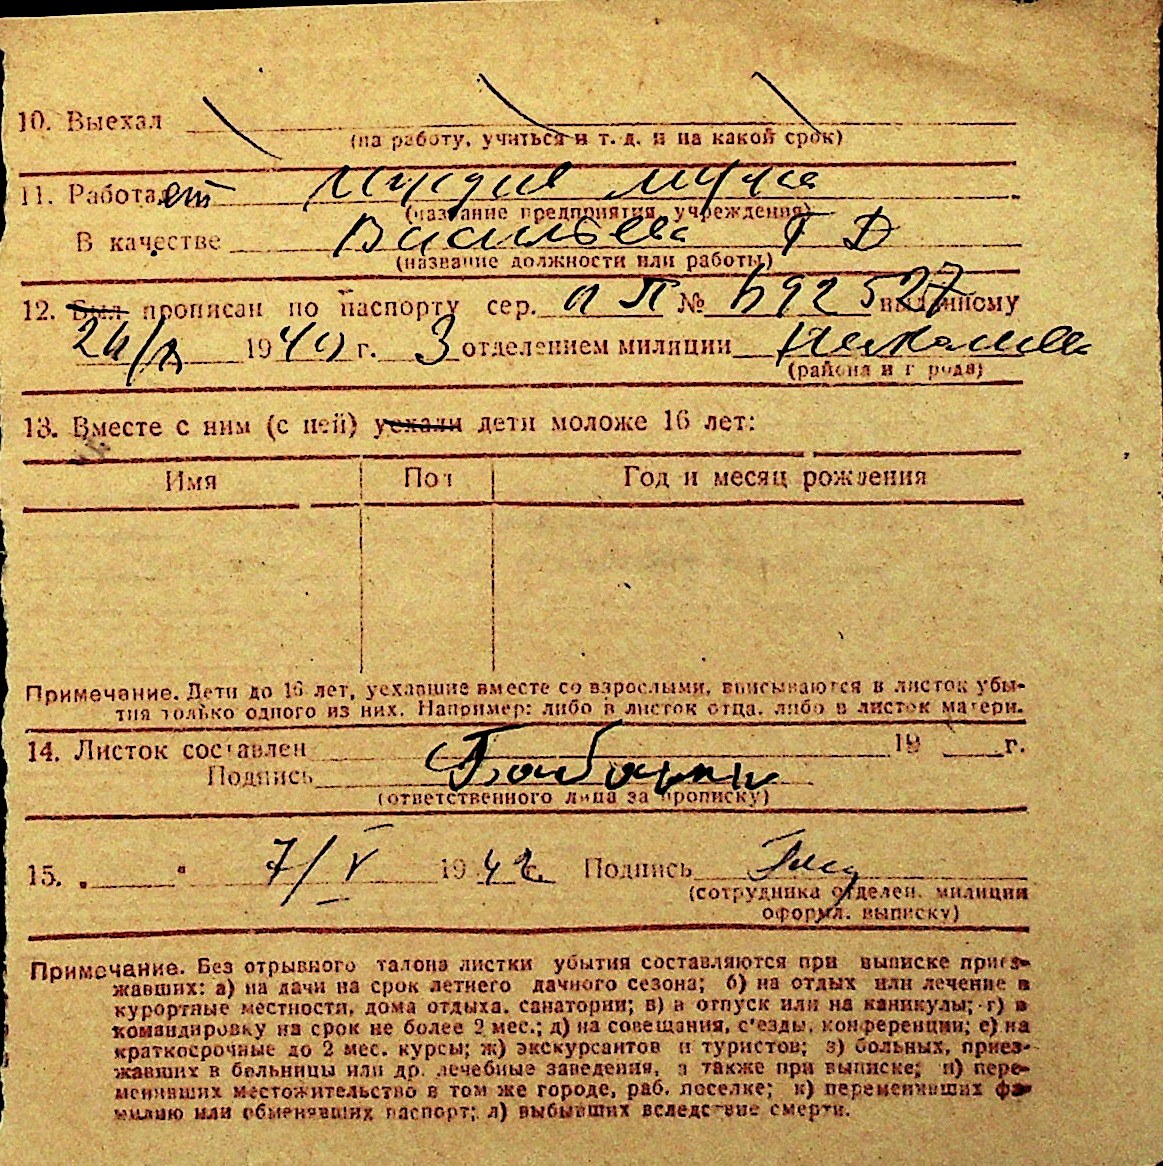 10. Выехал
(на работу, учиться и т. д. и на какой срок)
11. Работает муж
(название предприятия, учреждения)
В качестве Васильева Г Д
(название должности или работы)
12. Был прописан по паспорту сер. П № 692527 выданному
24/ 1940 г. 3 отделением милиции
(района и города)
13. Вместе с ним (с ней) уехали дети моложе 16 лет:
Имя Пол Год и месяц рождения
Примечание. Дети до 16 лет, уехавшие вместе со взрослыми, вписываются в листок убы-
тия только одного из них. Например: либо в листок отца, либо в листок матери.
14. Листок составлен 19 г.
Подпись
(ответственного лица за прописку)
15. „ " 7/V 1942 г. Подпись
(сотрудника отделен. милиции
оформл. выписку)
Примечание. Без отрывного талона листки убытия составляются при выписке приез-
жавших: а) на дачи на срок летнего дачного сезона; б) на отдых или лечение в
курортные местности, дома отдыха, санатории; в) в отпуск или на каникулы; г) в
командировку на срок не более 2 мес.; д) на совещания, с'езды, конференции; е) на
краткосрочные до 2 мес. курсы; ж) экскурсантов и туристов; з) больных, приез-
жавших в больницы или др. лечебные заведения, а также при выписке; и) пере-
менивших местожительство в том же городе, раб. поселке; к) переменивших фа-
милию или обменявших паспорт; л) выбывших вследствие смерти.